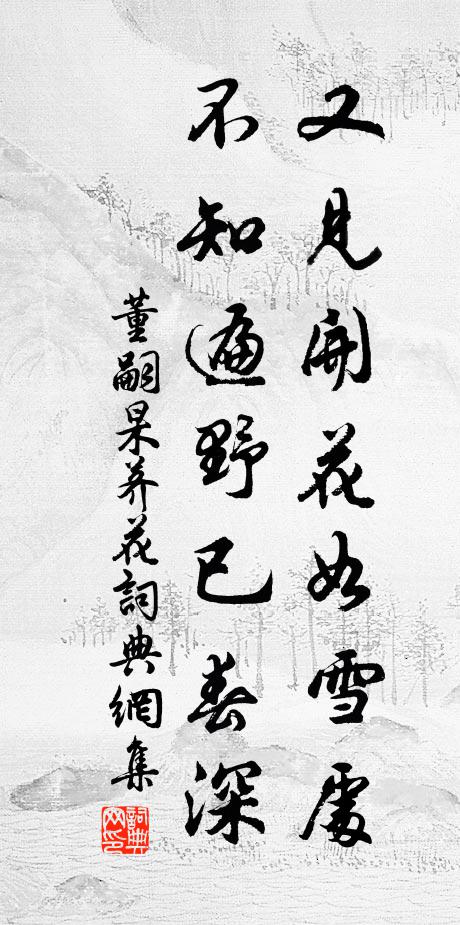 又見開花如雪處
不知遍野已春深
董嗣杲荞花詞典網集
詞典
网印